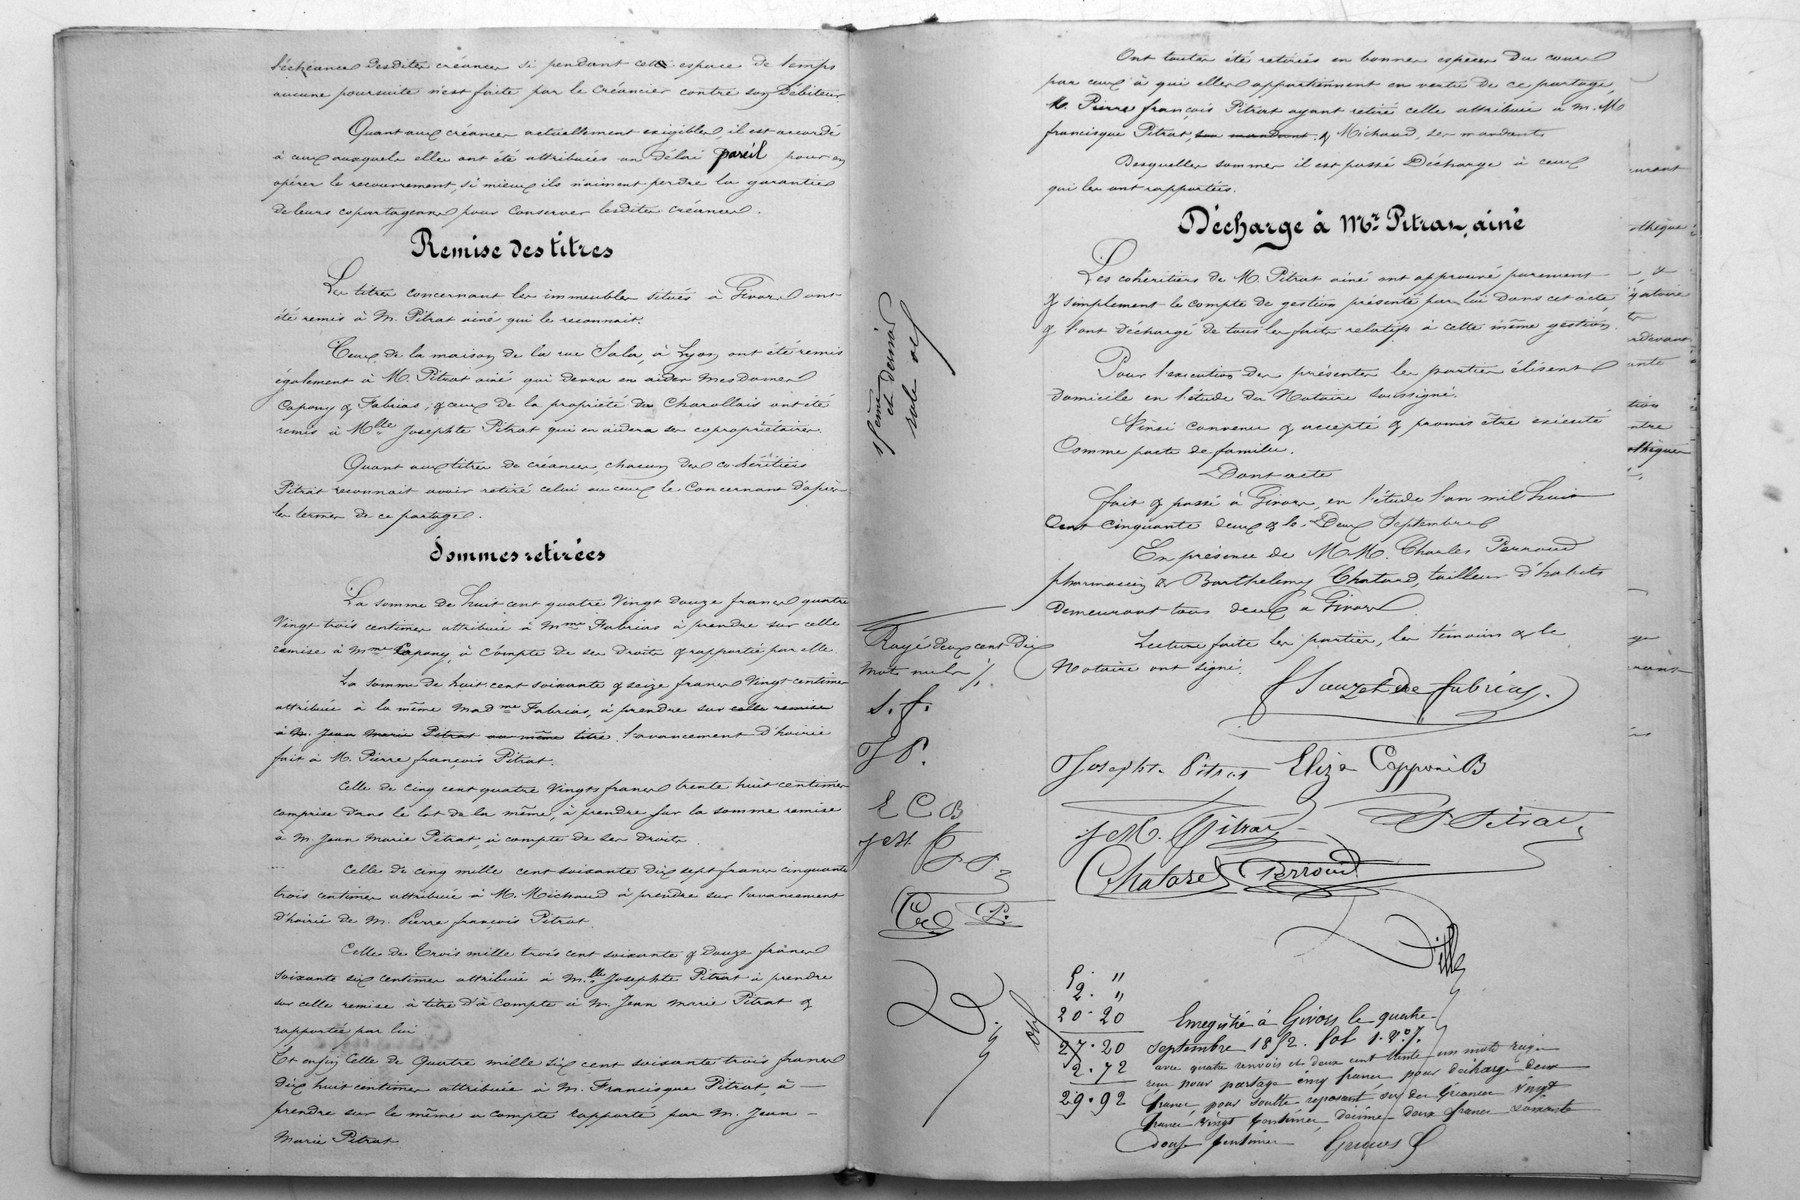 l'échéance desdites créances si pendant cet espace de temps
aucune poursuite n'est faite par le Créancier contre son Débiteur.
Quant aux créances actuellement exigibles, il est accordé
à ceux auxquels elles ont été attribuées un délai pareil pour en
opérer le recouvrement, si mieux ils n'aiment perdre la garantie
de leurs copartageans pour Conserver lesdites créances.
Remise des titres
Les titres concernant les immeubles situés à Givors ont
été remis à M. Pitrat ainé qui le reconnait.
Ceux de la maison de la rue Sala, à Lyon ont été remis
également à M. Pitrat ainé qui devra en aider Mesdames
Capony & Fabrias, & ceux de la propriété du Charollais ont été
remis à Mlle Josephte Pitrat qui en aidera ses copropriétaires.
Quant aux titres de créances, chacun des co-héritiers
Pitrat reconnait avoir retiré celui ou ceux le Concernant d'après
les termes de ce partage.
Sommes retirées
La somme de huit cent quatre Vingt douze francs quatre
Vingt trois centimes attribuée à Mme Fabrias à prendre sur celle
remise à Mme Capony, à Compte de ses droits & rapportée par elle.
La somme de huit cent soixante & seize francs Vingt centimes
attribuée à la même Madme Fabrias, à prendre sur celle remise
à M. Jean Marie Pitrat au même titre l'avancement d'hoirie
fait à M. Pierre françois Pitrat.
Celle de cinq cent quatre Vingts francs trente huit centimes
comprise dans le lot de la même, à prendre sur la somme remise
à M. Jean Marie Pitrat, à compte de ses Droits.
Celle de cinq mille cent soixante dix sept francs cinquante
trois centimes attribuée à M. Michaud à prendre sur l'avancement
d'hoirie de M. Pierre françois Pitrat.
Celle de Trois mille trois cent soixante & douze francs
soixante six centimes attribuée à Mlle Josephte Pitrat à prendre
sur celle remise à titre d'à Compte à M. Jean Marie Pitrat &
rapportée par lui
Et enfin Celle de Quatre mille Six cent soixante trois francs
dix huit centimes attribuée à M. Francisque Pitrat, à
prendre sur le même a compte rapporté par M. Jean
Marie Pitrat
et dernier
role
Rayé deux cent dix
Mots nuls
S. f.
J P.
E C B
J M. P
P.
Ont toutes été retirées en bonnes espèces du cours
par ceux à qui elles appartiennent en vertu de ce partage,
M. Pierre françois Pitrat ayant retiré celle attribuée à M. M
francisque Pitrat, son mandant & Michaud ses mandants
Desquelles sommes il est passé Décharge à ceux
qui les ont rapportées.
Décharge à Mr. Pitrat, ainé
Les cohéritiers de M. Pitrat ainé ont approuvé purement
& simplement le compte de gestion présenté par lui dans cet acte
& l'ont déchargé de tous les faits relatifs à cette même gestion.
Pour l'exécution des présentes les parties élisent
domicile en l'étude du Notaire soussigné.
Ainsi convenu & accepté & promis être exécuté
Comme pacte de famille.
Dont acte
fait & passé à Givors, en l'étude l'an mil huit
Cent Cinquante deux & le Deux Septembre
En présence de M.M. Charles Perroud
pharmacien & Barthelemy Chatard, tailleur d'habits
Demeurant tous deux à Givors
Lecture faite les parties, les témoins & le
Notaire ont signé.
f Sauzet de fabrias.
Josephte Pitrat Eliza Capponi B
J M. Pitrat
P Pitrat
Chatard Perroud
5. "
2. "
20. 20
27. 20
2. 72
29. 92
Enregistré à Givors le quatre
septembre 1852. fol 1.
avec quatre renvois et deux cent trente un mots rayés
reçu pour partage cinq francs pour décharge deux
francs, pour soulte reposant sur des créances Vingt
francs vingt centimes, décime deux francs soixante
douze centimes